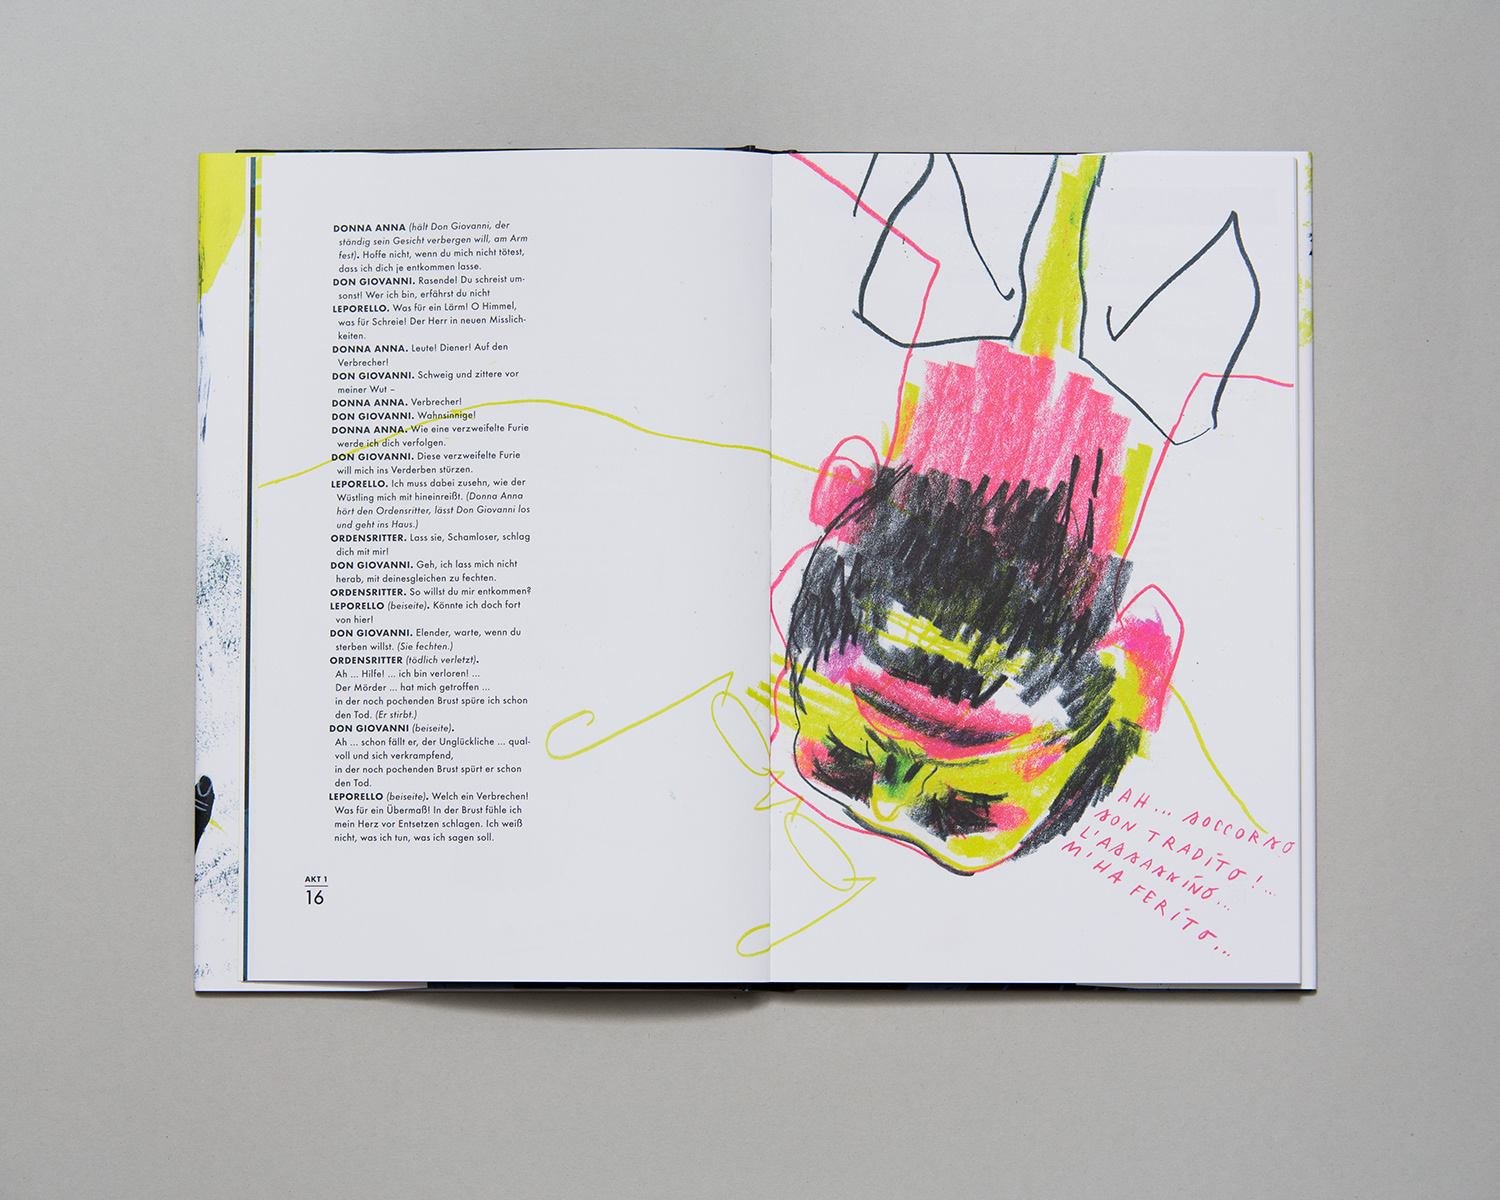 DONNA ANNA (hält Don Giovanni, der
ständig sein Gesicht verbergen will, am Arm
fest). Hoffe nicht, wenn du mich nicht tötest,
dass ich dich je entkommen lasse.
DON GIOVANNI. Rasende! Du schreist um-
sonst! Wer ich bin, erfährst du nicht
LEPORELLO. Was für ein Lärm! O Himmel,
was für Schreie! Der Herr in neuen Misslich-
keiten.
DONNA ANNA. Leute! Diener! Auf den
Verbrecher!
DON GIOVANNI. Schweig und zittere vor
meiner Wut –
DONNA ANNA. Verbrecher!
DON GIOVANNI. Wahnsinnige!
DONNA ANNA. Wie eine verzweifelte Furie
werde ich dich verfolgen.
DON GIOVANNI. Diese verzweifelte Furie
will mich ins Verderben stürzen.
LEPORELLO. Ich muss dabei zusehn, wie der
Wüstling mich mit hineinreißt. (Donna Anna
hört den Ordensritter, lässt Don Giovanni los
und geht ins Haus.)
ORDENSRITTER. Lass sie, Schamloser, schlag
dich mit mir!
DON GIOVANNI. Geh, ich lass mich nicht
herab, mit deinesgleichen zu fechten.
ORDENSRITTER. So willst du mir entkommen?
LEPORELLO (beiseite). Könnte ich doch fort
von hier!
DON GIOVANNI. Elender, warte, wenn du
sterben willst. (Sie fechten.)
ORDENSRITTER (tödlich verletzt).
Ah ... Hilfe! ... ich bin verloren! ...
Der Mörder ... hat mich getroffen ...
in der noch pochenden Brust spüre ich schon
den Tod. (Er stirbt.)
DON GIOVANNI (beiseite).
Ah ... schon fällt er, der Unglückliche ... qual-
voll und sich verkrampfend,
in der noch pochenden Brust spürt er schon
den Tod.
LEPORELLO (beiseite). Welch ein Verbrechen!
Was für ein Übermaß! In der Brust fühle ich
mein Herz vor Entsetzen schlagen. Ich weiß
nicht, was ich tun, was ich sagen soll.
AKT 1
16
AH ... SOCCORSO
SON TRADITO! ...
L'ASSASSINO ...
M'HA FERITO ...